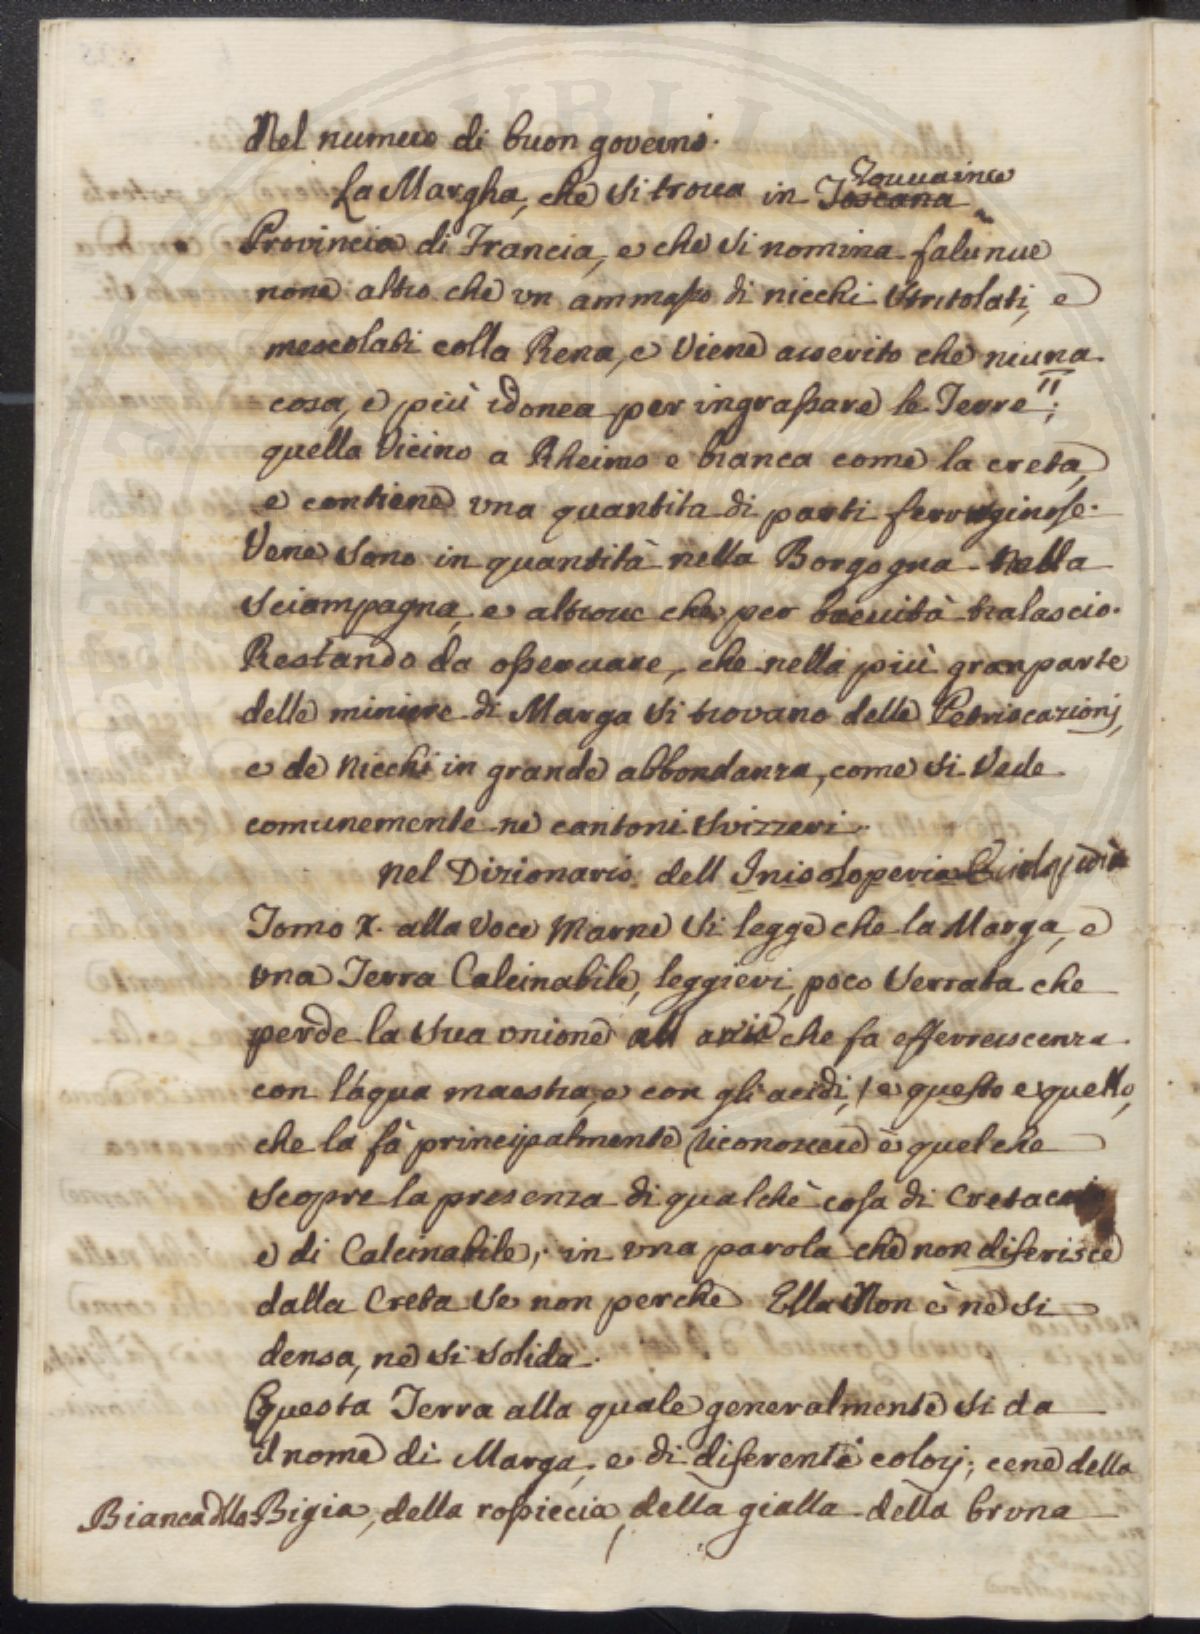 Nel numero di buon governo.
La Margha, che si troua in Toscana Touuaine
Provincia di Francia, e che si nomina falunue
none altro che vn ammasso di nicchi stritolati, e
mescolati colla Rena, e viene asserito che niuna
cosa, e più idonea per ingrassare le Terre;
quella vicino a Rheims e bianca come la creta,
e contiene vna quantita di parti ferruginose.
Vene sono in quantità nella Borgogna nella
sciampagna, e altroue che per breuità tralascio.
Restando da osseruare, che nella più gran parte
delle miniere di Marga si trovano delle Petriscazionj,
e de Nicchi in grande abbondanza, come si vede
comunemente ne cantoni svizzeri.
Nel Dizionario dell
Tomo X. alla voce Marne si legge che la Marga, e
vna Terra Calcinabile, leggieri, poco serrata che
perde la sua vnione all aria che fa efferrescenza
con l'aqua maestra, e con gli acidi, e questo e quello,
che la fà principalmente riconoscere e quel che
scopre la presenza di qualchè cosa di Cretaceo
e di Calcinabile; in vna parola che non diferisce
dalla Creta se non perche Ella Non è nè si
densa, nè si solida.
Questa Terra alla quale generalmente si da
il nome di Marga, e di diferenti colorj; cene della
Bianca della Bigia, della rossiccia, della gialla della brvna